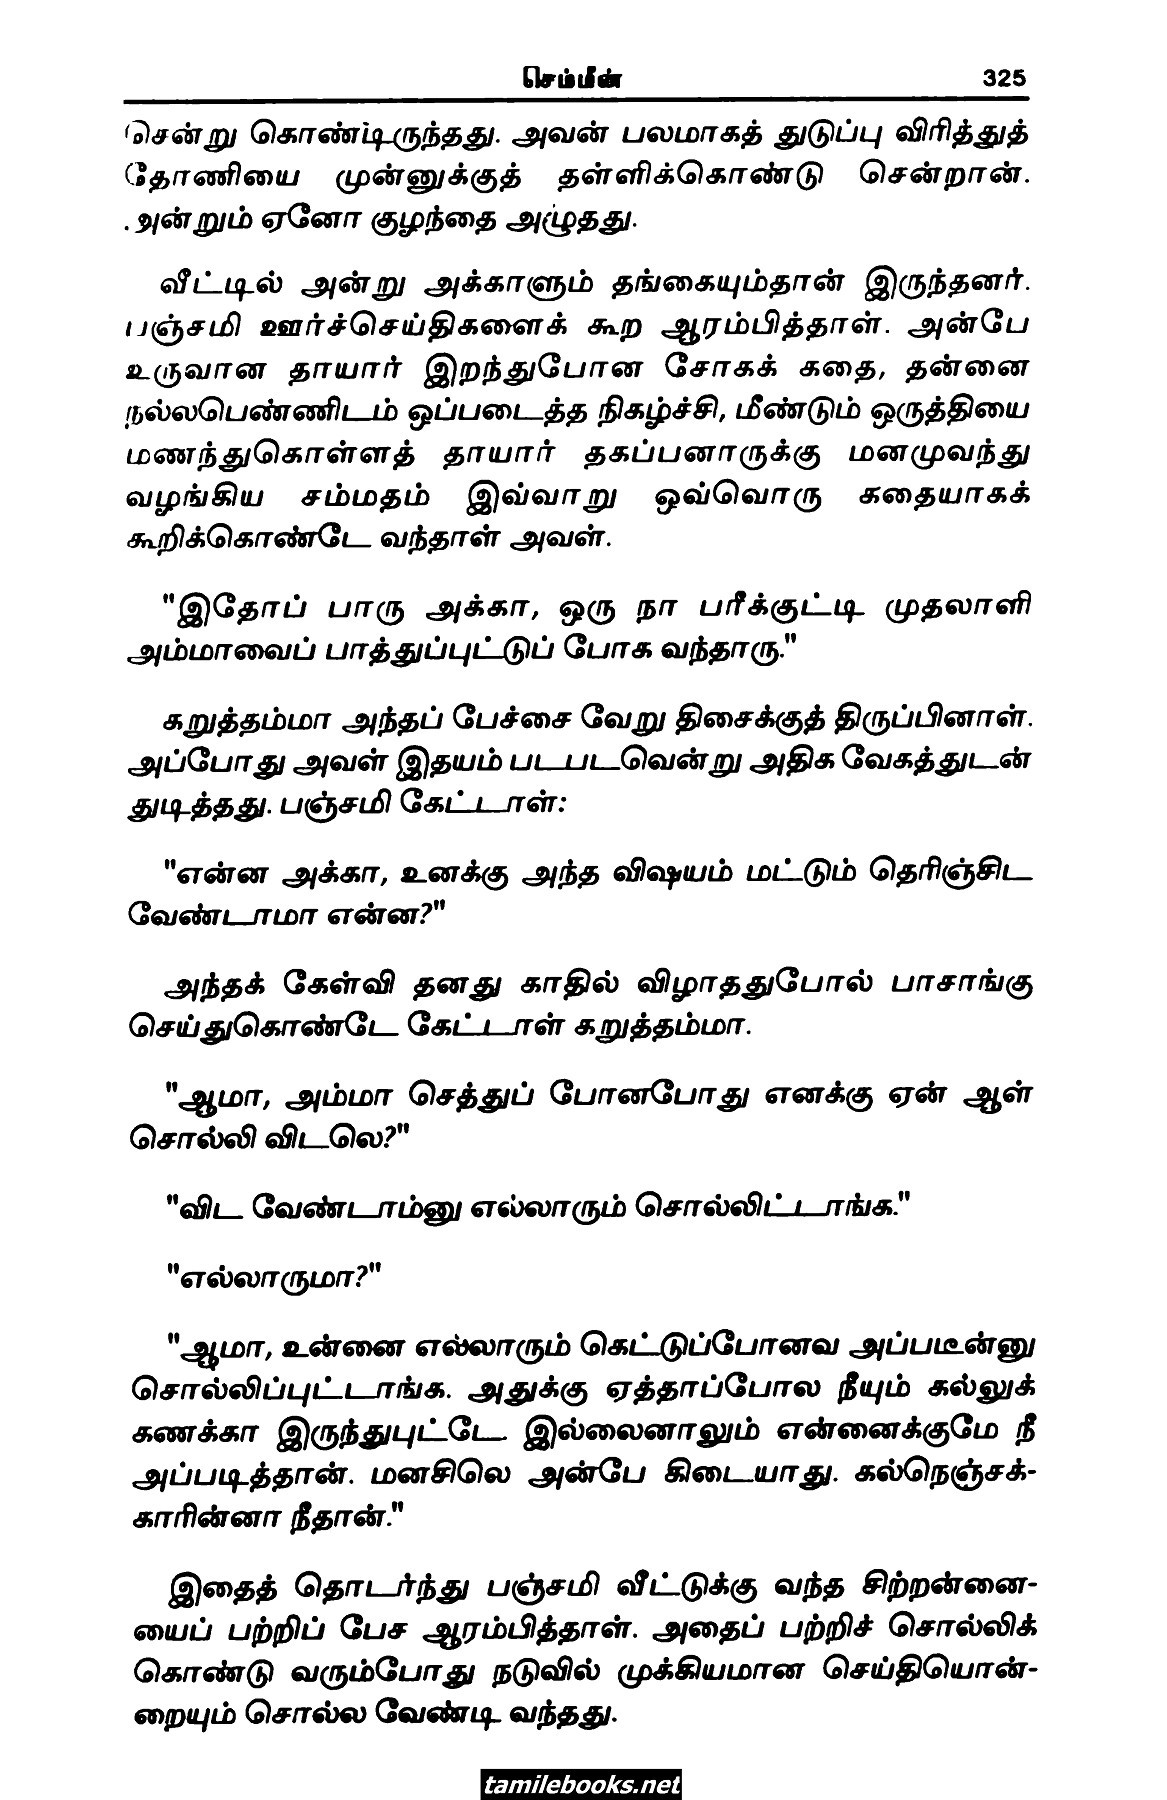 செம்மீன் 325
சென்று கொண்டிருந்தது. அவன் பலமாகத் துடுப்பு விரித்துத்
தோணியை முன்னுக்குத் தள்ளிக்கொண்டு சென்றான்.
அன்றும் ஏனோ குழந்தை அழுதது.
வீட்டில் அன்று அக்காளும் தங்கையும்தான் இருந்தனர்.
பஞ்சமி ஊர்ச்செய்திகளைக் கூற ஆரம்பித்தாள். அன்பே
உருவான தாயார் இறந்துபோன சோகக் கதை, தன்னை
நல்லபெண்ணிடம் ஒப்படைத்த நிகழ்ச்சி, மீண்டும் ஒருத்தியை
மணந்துகொள்ளத் தாயார் தகப்பனாருக்கு மனமுவந்து
வழங்கிய சம்மதம் இவ்வாறு ஒவ்வொரு கதையாகக்
கூறிக்கொண்டே வந்தாள் அவள்.
"இதோப் பாரு அக்கா, ஒரு நா பரீக்குட்டி முதலாளி
அம்மாவைப் பாத்துப்புட்டுப் போக வந்தாரு."
கறுத்தம்மா அந்தப் பேச்சை வேறு திசைக்குத் திருப்பினாள்.
அப்போது அவள் இதயம் படபடவென்று அதிக வேகத்துடன்
துடித்தது. பஞ்சமி கேட்டாள்:
"என்ன அக்கா, உனக்கு அந்த விஷயம் மட்டும் தெரிஞ்சிட
வேண்டாமா என்ன?"
அந்தக் கேள்வி தனது காதில் விழாததுபோல் பாசாங்கு
செய்துகொண்டே கேட்டாள் கறுத்தம்மா.
"ஆமா, அம்மா செத்துப் போனபோது எனக்கு ஏன் ஆள்
சொல்லி விடலெ?"
"விட வேண்டாம்னு எல்லாரும் சொல்லிட்டாங்க."
"எல்லாருமா?"
"ஆமா, உன்னை எல்லாரும் கெட்டுப்போனவ அப்படீன்னு
சொல்லிப்புட்டாங்க. அதுக்கு ஏத்தாப்போல நீயும் கல்லுக்
கணக்கா இருந்துபுட்டே. இல்லைனாலும் என்னைக்குமே நீ
அப்படித்தான். மனசிலெ அன்பே கிடையாது. கல்நெஞ்சக்-
காரின்னா நீதான்."
இதைத் தொடர்ந்து பஞ்சமி வீட்டுக்கு வந்த சிற்றன்னை-
யைப் பற்றிப் பேச ஆரம்பித்தாள். அதைப் பற்றிச் சொல்லிக்
கொண்டு வரும்போது நடுவில் முக்கியமான செய்தியொன்-
றையும் சொல்ல வேண்டி வந்தது.
tamilebooks.net